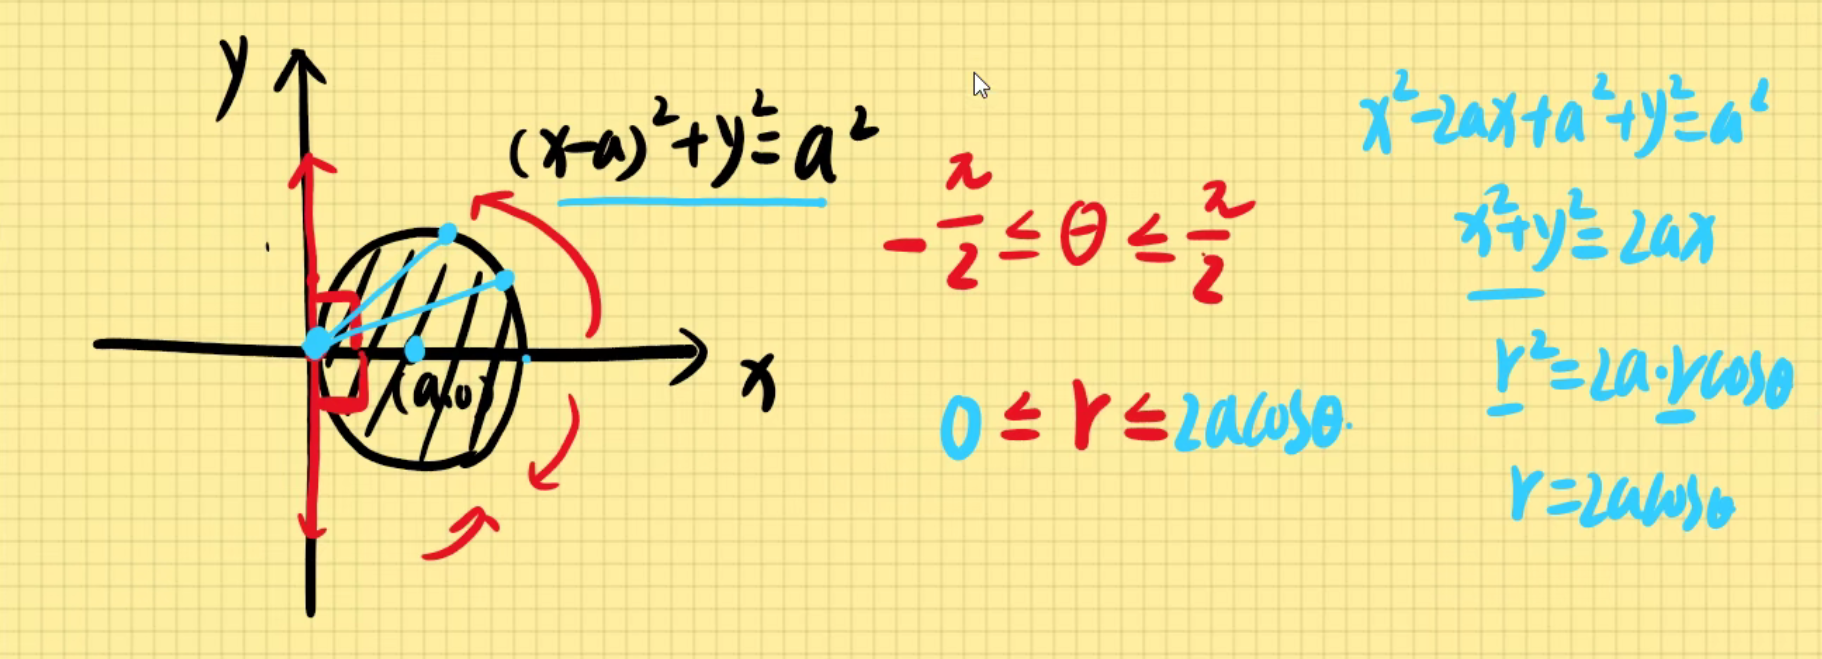 y
(x-a)²+y²=a²
-π/2 ≤ θ ≤ π/2
(a,0)
x
0 ≤ r ≤ 2acosθ.
x²-2ax+a²+y²=a²
x²+y²=2ax
r²=2a·rcosθ
r=2acosθ